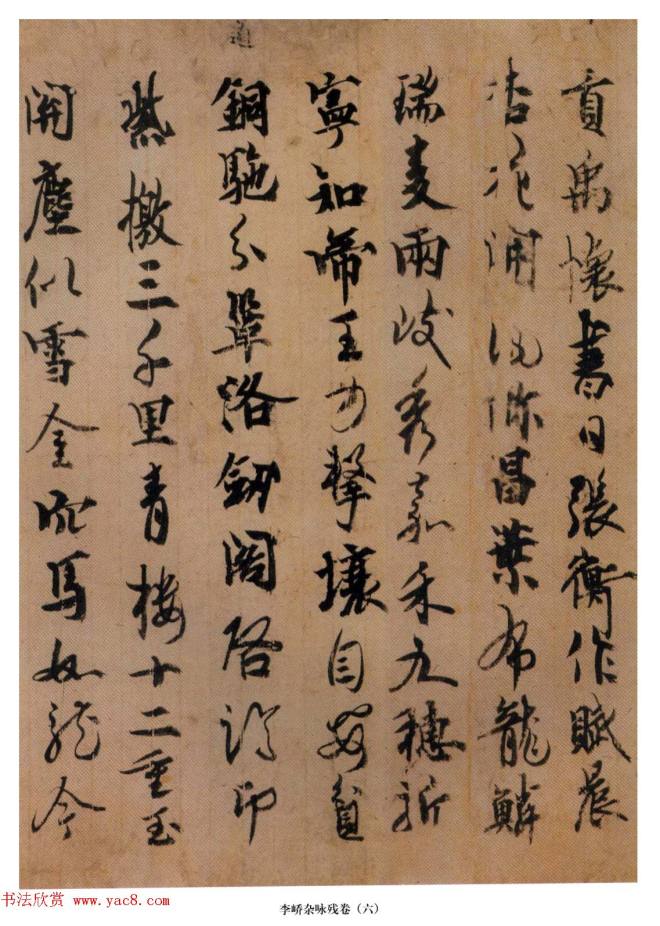 貢禹懷書日張衡作賦晨
杏花開昌葉布龍鱗
瑞麦兩岐秀嘉禾九穗新
寧知帝王力擊壤自安貧
道
銅駞分鞏洛劔閣啓臨卭
紫徼三千里青樓十二重玉
關塵似雪金穴馬如龍今
书法欣赏 www.yac8.com
李峤杂咏残卷（六）